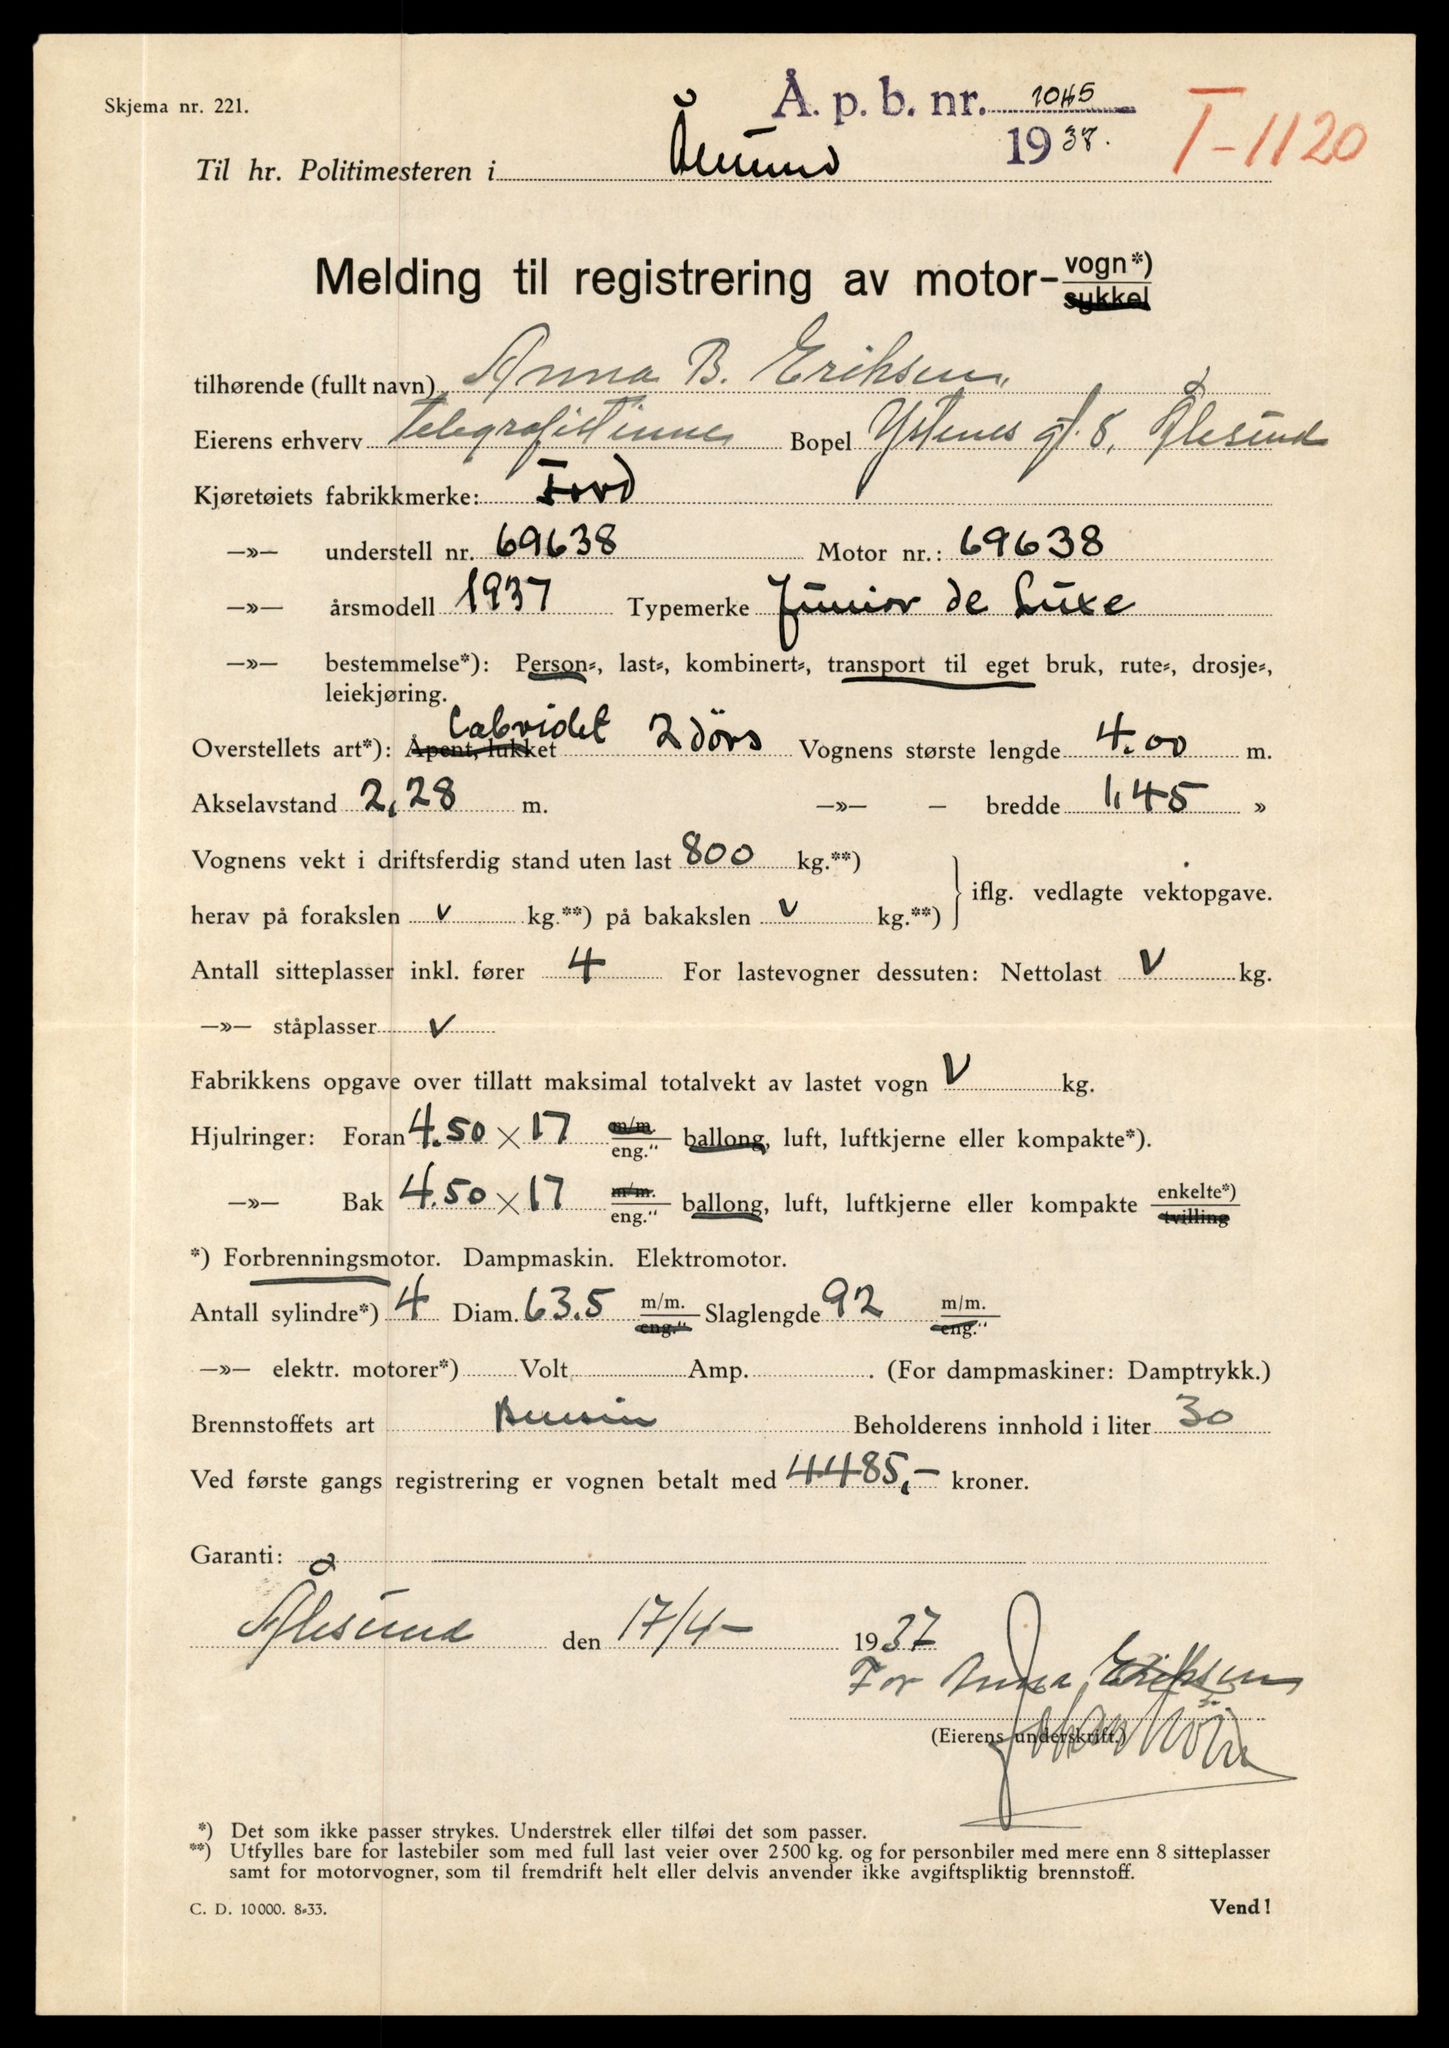 Skjema nr. 221.
Å. p. b. nr. 1045
1938.
T-1120
Til hr. Politimesteren i Ålesund
Melding til registrering av motor- vogn*) sykkel
tilhørende (fullt navn) Anna B. Eriksen,
Eierens erhverv Telegrafistinne Bopel Ystenes gt. 8, Ålesund
Kjøretøiets fabrikkmerke: Ford
—»— understell nr. 69638 Motor nr.: 69638
—»— årsmodell 1937 Typemerke Junior de Luxe
—»— bestemmelse*): Person-, last-, kombinert-, transport til eget bruk, rute-, drosje-,
leiekjøring.
Overstellets art*): Åpent, lukket Cabriolet 2 dörs Vognens største lengde 4.00 m.
Akselavstand 2,28 m. —»— – bredde 1,45 »
Vognens vekt i driftsferdig stand uten last 800 kg.**)
herav på forakslen v kg.**) på bakakslen v kg.**) iflg. vedlagte vektopgave.
Antall sitteplasser inkl. fører 4 For lastevogner dessuten: Nettolast v kg.
—»— ståplasser v
Fabrikkens opgave over tillatt maksimal totalvekt av lastet vogn v kg.
Hjulringer: Foran 4.50 × 17 m/m. eng." ballong, luft, luftkjerne eller kompakte*).
—»— Bak 4.50 × 17 m/m. eng." ballong, luft, luftkjerne eller kompakte enkelte*) tvilling
*) Forbrenningsmotor. Dampmaskin. Elektromotor.
Antall sylindre*) 4 Diam. 63.5 m/m. eng." Slaglengde 92 m/m. eng."
—»— elektr. motorer*) Volt Amp. . (For dampmaskiner: Damptrykk.)
Brennstoffets art Bensin Beholderens innhold i liter 30
Ved første gangs registrering er vognen betalt med 4485,- kroner.
Garanti:
Ålesund den 17/4- 1937
For Anna Eriksen
(Eierens underskrift.)
*) Det som ikke passer strykes. Understrek eller tilføi det som passer.
**) Utfylles bare for lastebiler som med full last veier over 2500 kg. og for personbiler med mere enn 8 sitteplasser
samt for motorvogner, som til fremdrift helt eller delvis anvender ikke avgiftspliktig brennstoff.
C. D. 10000. 8-33.
Vend!